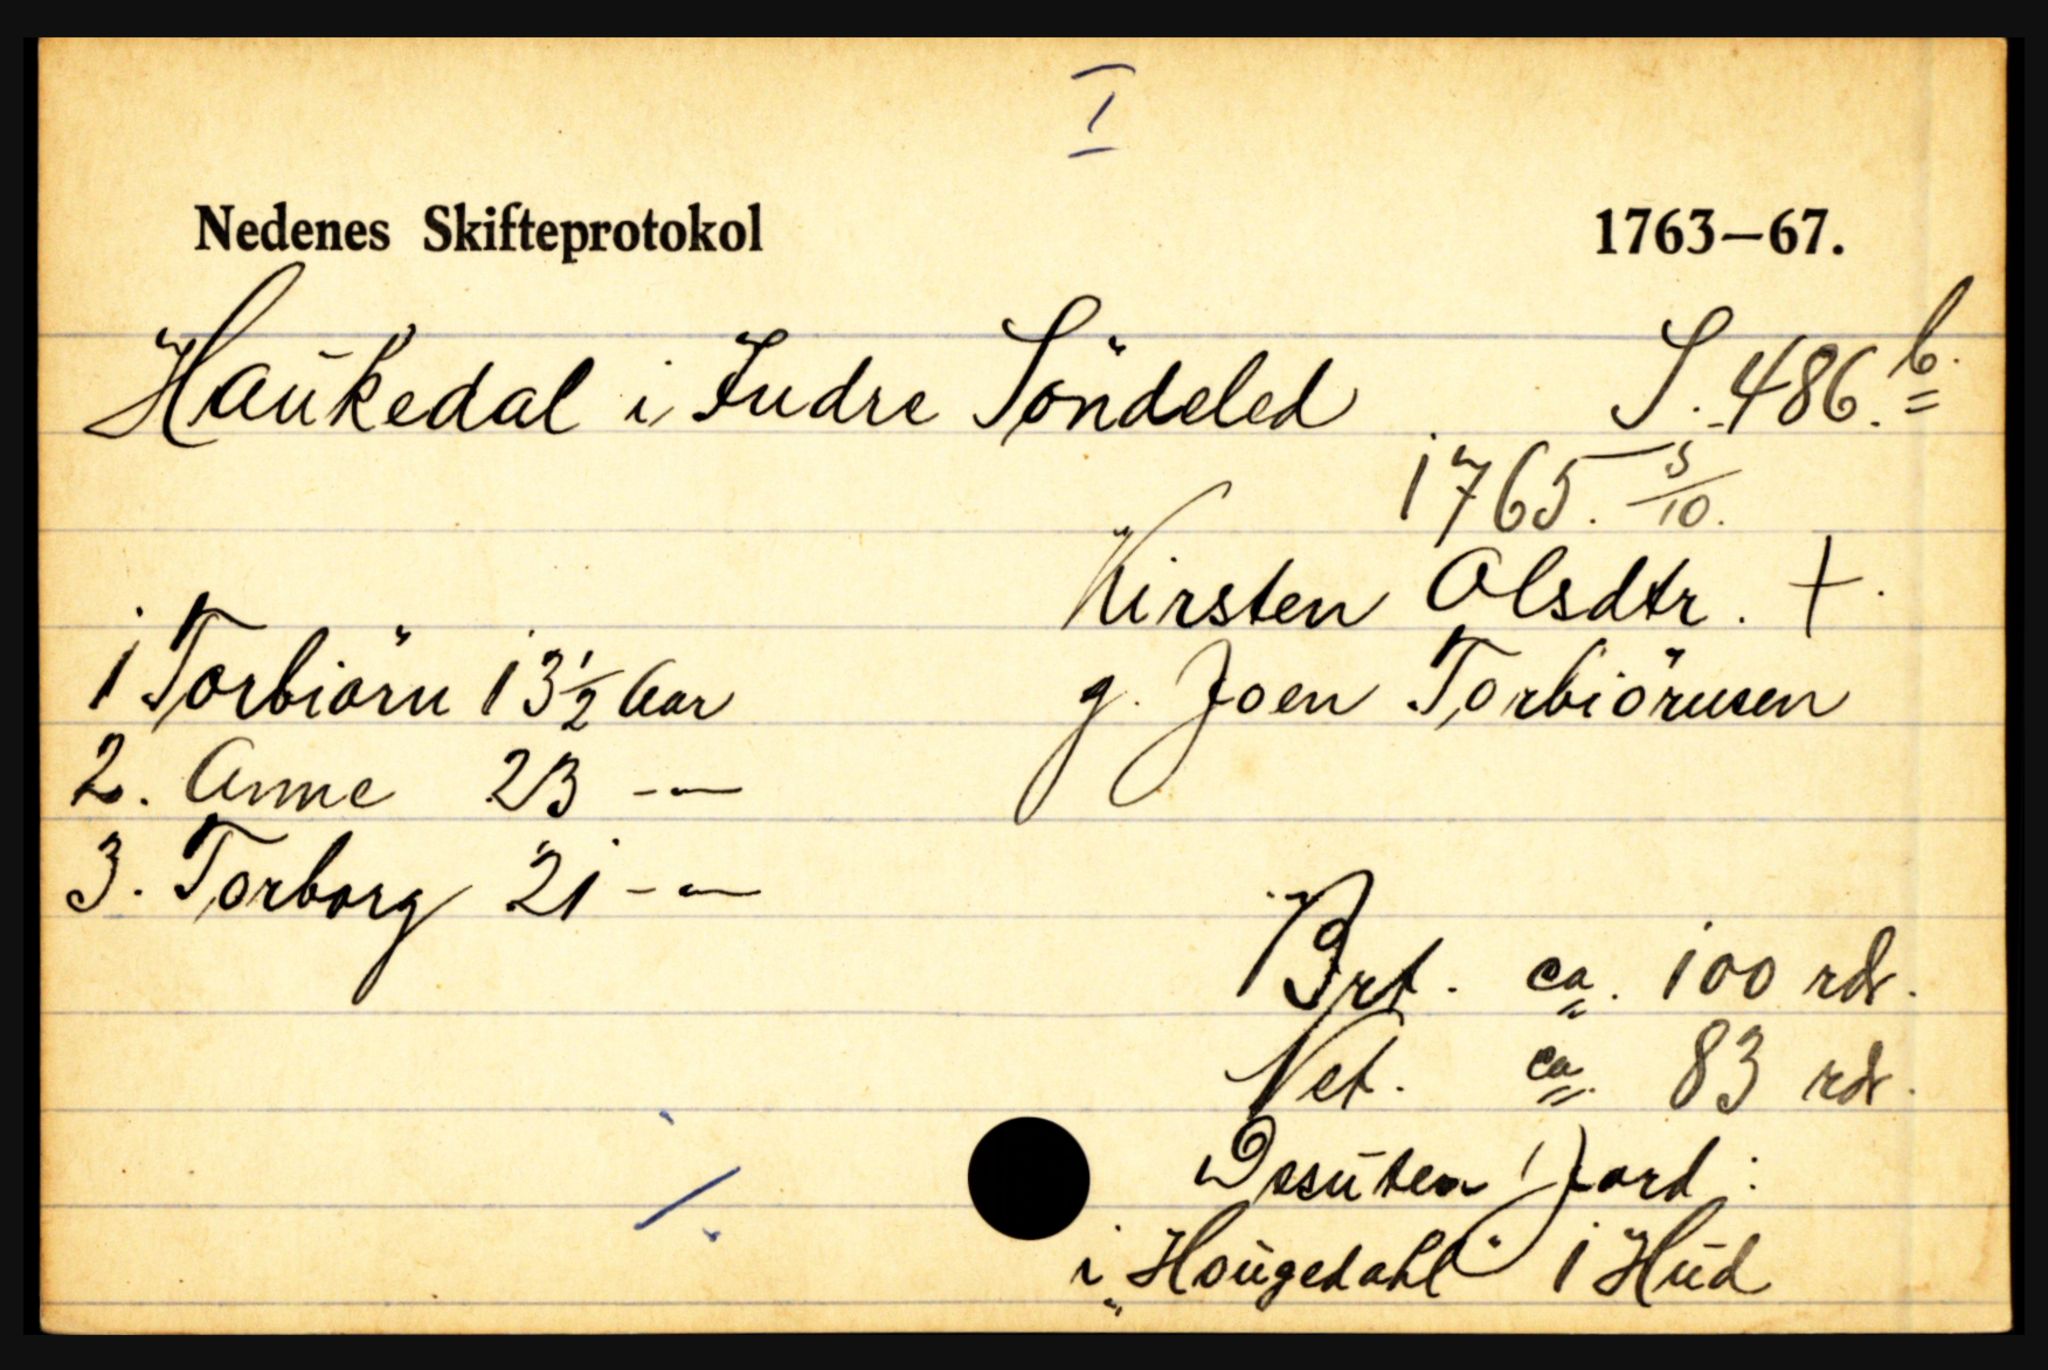 I
Nedenes Skifteprotokol 1763—67.
Haukedal i Indre Söndeled S. 486.b.
1765. 5/10.
Kirsten Olsdtr. +.
1 Torbiörn 13 1/2 Aar g. Joen Torbiörnsen
2. Anne 23 -"-
3. Torborg 21 -"-
Brt. ca. 100 rdr.
Net. ca. 83 rdr.
Desuten Jord:
i "Hougedahl" 1 Hud